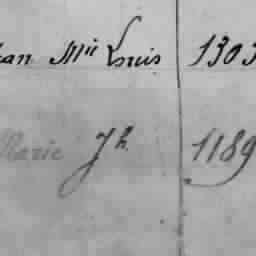 ean Mii Louis 1303
Marie Jh 1189